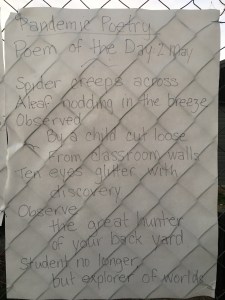 Pandemic Poetry
Poem of the Day: 2 May
Spider creeps across
A leaf nodding in the breeze
Observed
By a child cut loose
From classroom walls
Ten eyes glitter with
discovery
Observe
the great hunter
of your back yard
Student no longer
but explorer of worlds